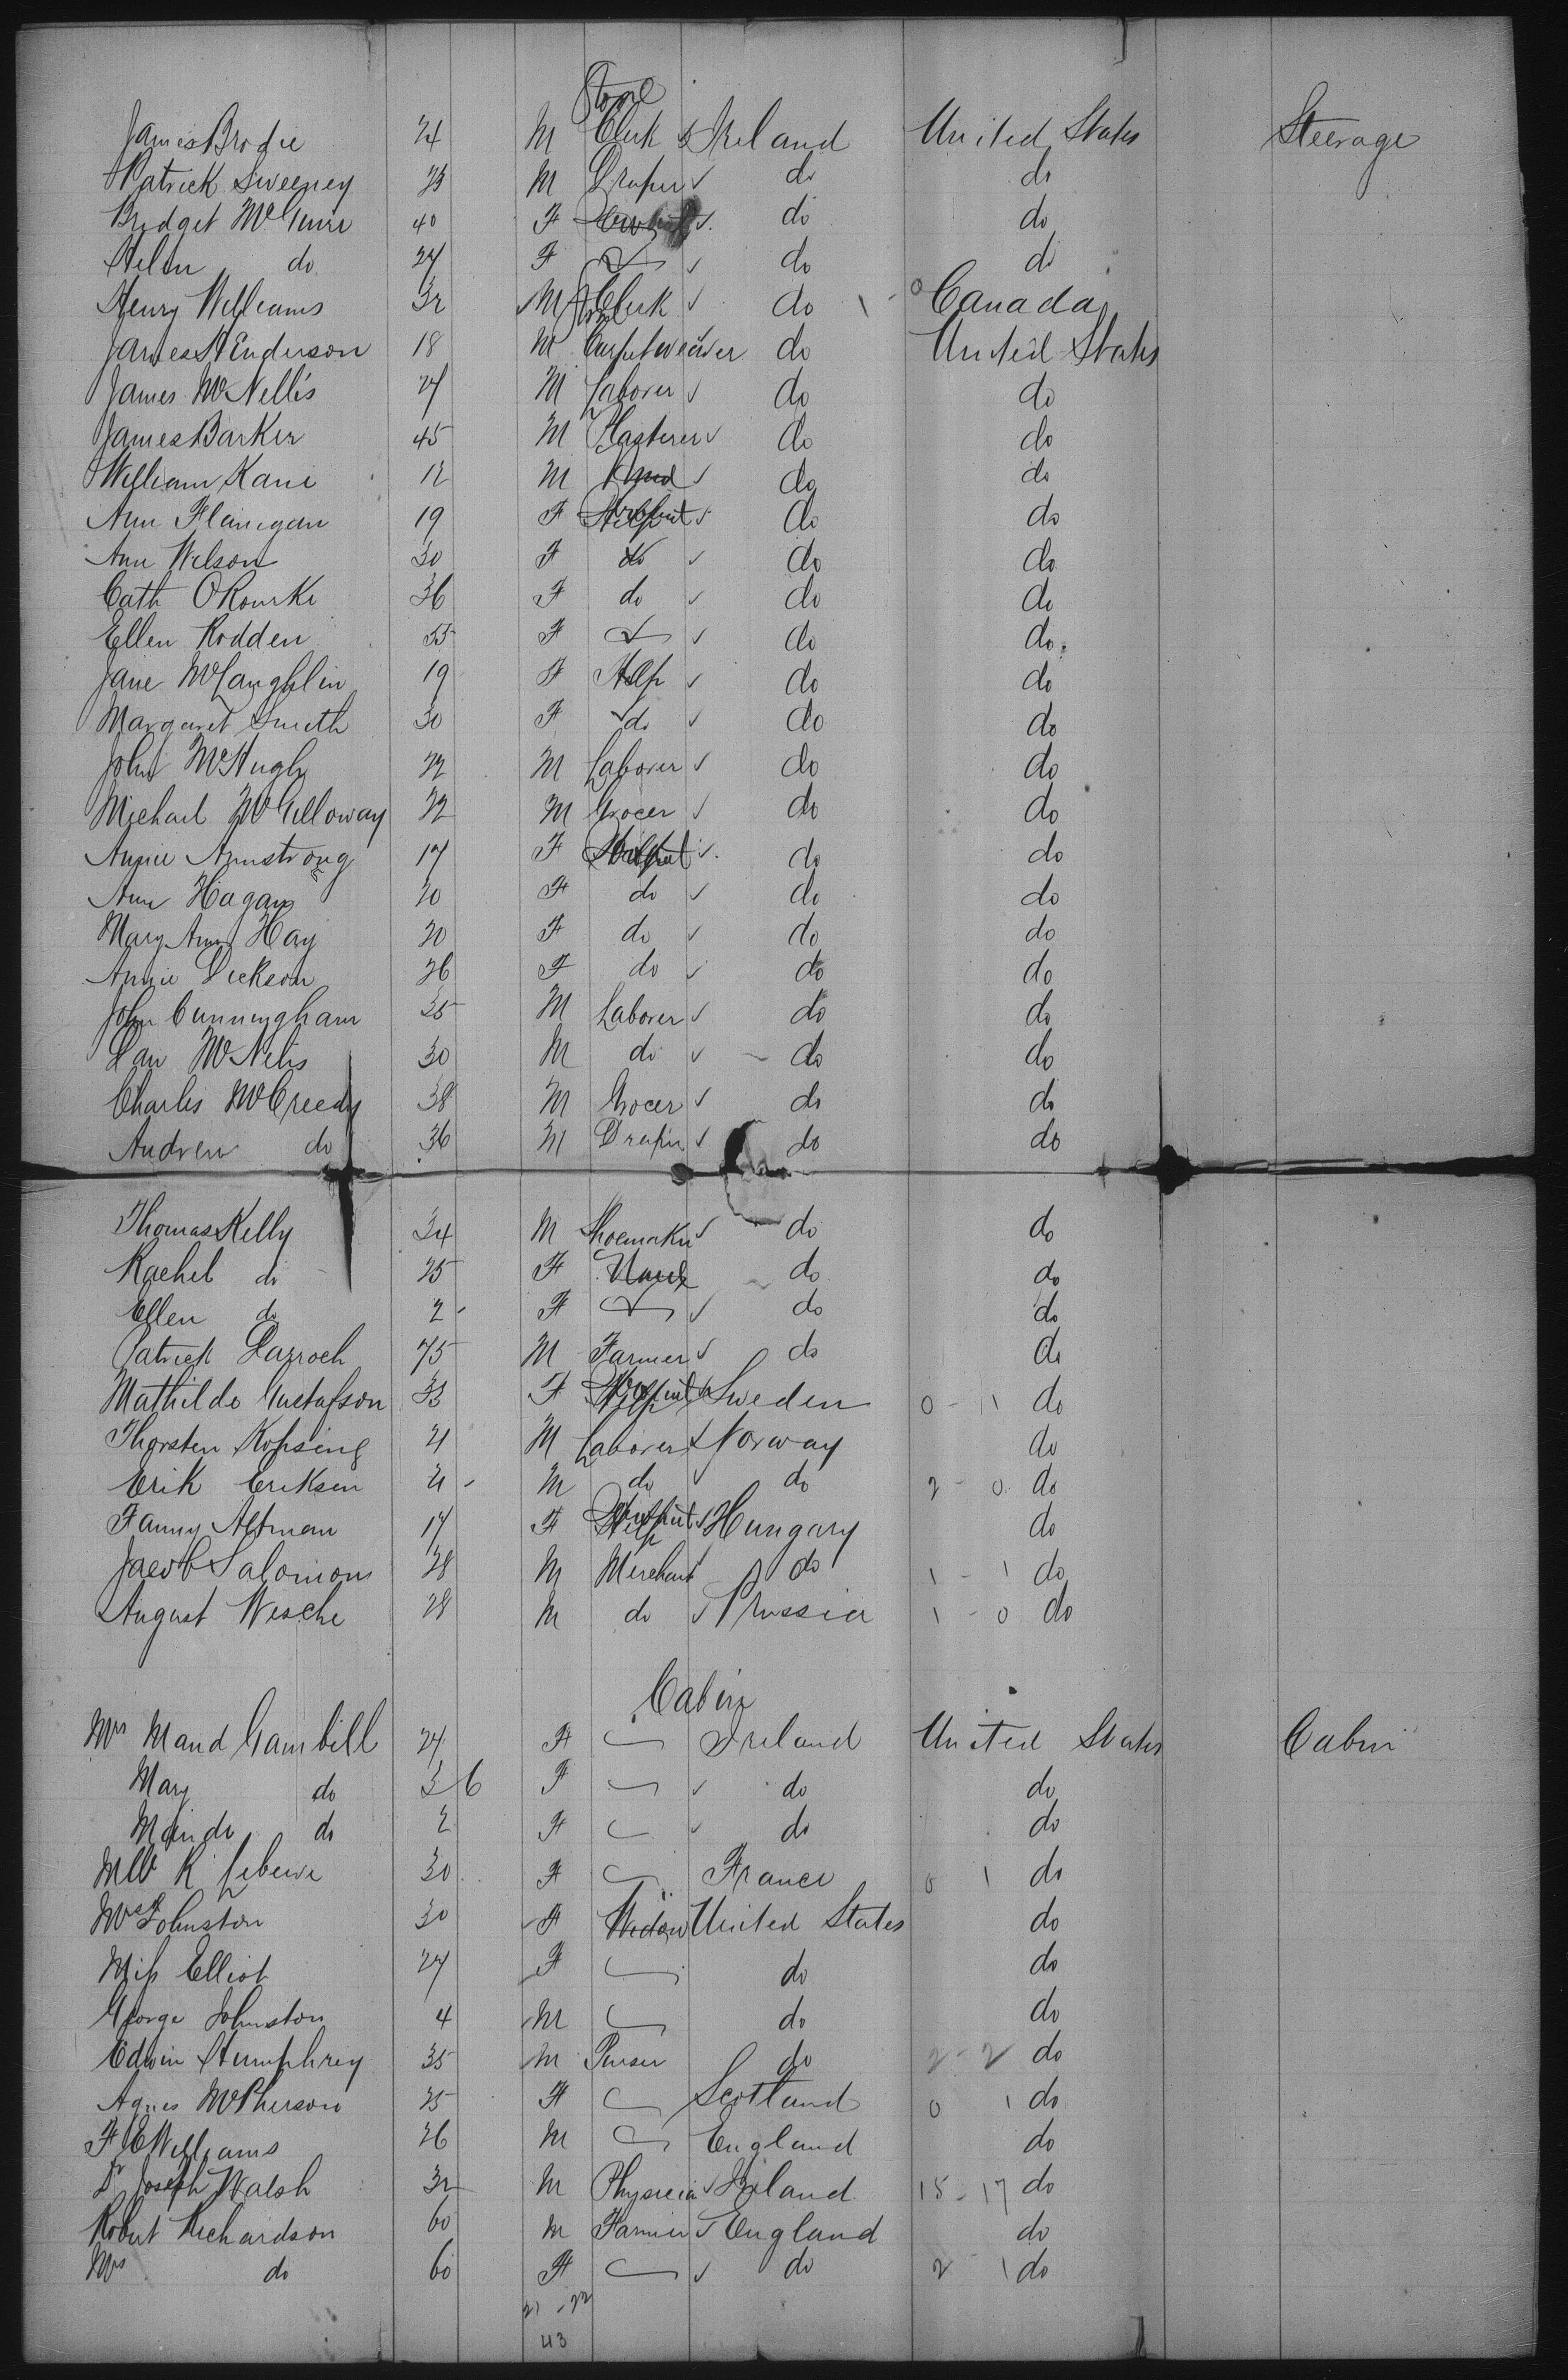 Store
James Brodie 24 M Clerk Ireland United States Steerage
Patrick Sweeney 23 M Draper do do
Bridget McGuire 40 F do do
Helen do 24 F do do
Henry Williams 32 M Clerk do Canada
James Henderson 18 M Carpet weaver do United States
James McNellis 24 M Laborer do do
James Barker 45 M Plasterer do do
William Kane 12 M do do
Ann Flanigan 19 F Help do do
Ann Wilson 30 F do do do
Cath O'Rourke 36 F do do do
Ellen Rodden 55 F do do
Jane McLaughlin 19 F Help do do
Margaret Smith 30 F do do do
John McHugh 22 M Laborer do do
Michael McGilloway 22 M Grocer do do
Annie Armstrong 17 F do do
Ann Hagan 20 F do do do
Mary Ann Hay 20 F do do do
Annie Dickson 26 F do do do
John Cunningham 35 M Laborer do do
Dan McNelis 30 M do do do
Charles McCreedy 38 M Grocer do do
Andrew do 36 M Draper do do
Thomas Kelly 34 M Shoemaker do do
Rachel do 25 F do do
Ellen do 2 F do do
Patrick 75 M Farmer do do
Mathilde Gustafson 33 F Help Sweden 0 - 1 do
Thorsten 21 M Laborer Norway do
Erik Eriksen 21 M do do 2 - 0 do
Fanny Altman 17 F Help Hungary do
Jacob Salomons 28 M Merchant do 1 - 1 do
August Wesche 28 M do Prussia 1 - 0 do
Cabin
Mrs Maud Gambill 24 F Ireland United States Cabin
Mary do 36 F do do
Maude do 2 F do do
R 30 F France 0 1 do
Mrs Johnston 30 F Widow United States do
Miss Elliot 24 F do do
George Johnston 4 M do do
Edwin Humphrey 35 M Purser do 2 - 2 do
Agnes McPherson 25 F Scotland 0 1 do
F C Williams 26 M England do
Dr Joseph Walsh 32 M Physician Ireland 15 - 17 do
Robert Richardson 60 M Farmer England do
Mrs do 60 F do 2 1 do
21 - 22
43